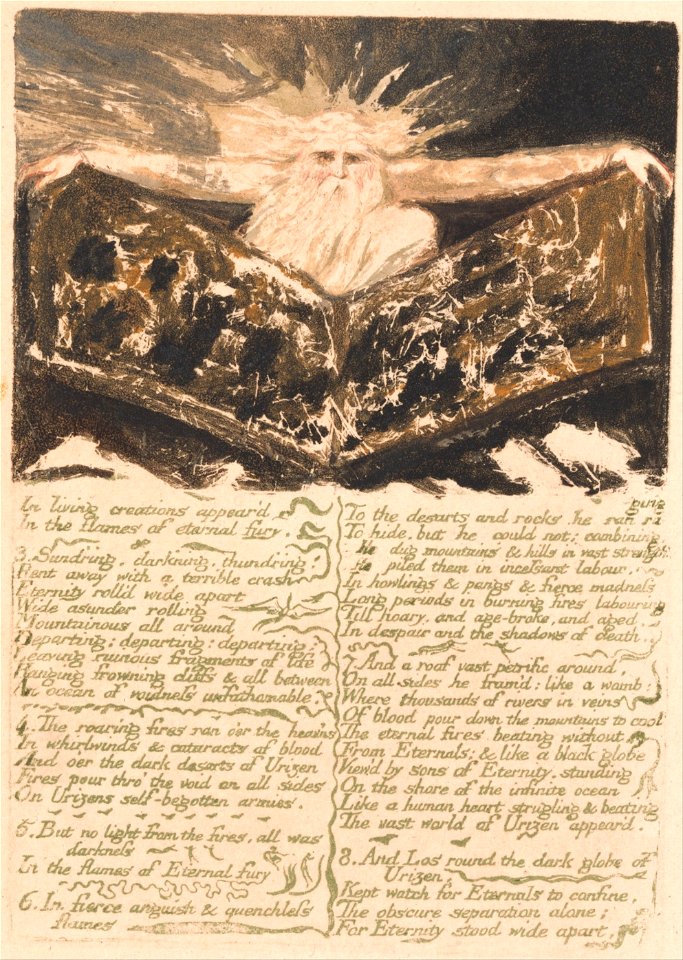 In living creations appear'd
In the flames of eternal fury.
3. Sundring, darkning, thundring:
Rent away with a terrible crash
Eternity roll'd wide apart
Wide asunder rolling
Mountainous all around
Departing; departing: departing:
Leaving ruinous fragments of life
Hanging frowning cliffs & all between
An ocean of voidness unfathomable.
4. The roaring fires ran o'er the heav'ns
In whirlwinds & cataracts of blood
And o'er the dark desarts of Urizen
Fires pour thro' the void on all sides
On Urizens self-begotten armies.
5. But no light from the fires, all was
darkness
In the flames of Eternal fury
6. In fierce anguish & quenchless
flames
To the desarts and rocks he ran ra
ging
To hide, but he could not: combining
he dug mountains & hills in vast strength,
He piled them in incessant labour,
In howlings & pangs & fierce madness
Long periods in burning fires labouring
Till hoary, and age-broke, and aged,
In despair and the shadows of death.
7. And a roof vast petrific around,
On all sides he fram'd: like a womb;
Where thousands of rivers in veins
Of blood pour down the mountains to cool
The eternal fires beating without
From Eternals; & like a black globe
View'd by sons of Eternity, standing
On the shore of the infinite ocean
Like a human heart strugling & beating
The vast world of Urizen appear'd.
8. And Los round the dark globe of
Urizen,
Kept watch for Eternals to confine,
The obscure separation alone;
For Eternity stood wide apart,